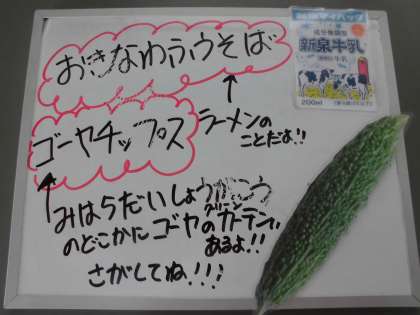 おきなわふうそば
成分無調整
新泉牛乳
200ml
ゴーヤチップス
ラーメンの
ことだよ!!
みはらだいしょうがっこう
のどこかにゴーヤのグリーンカーテンが
あるよ!!
さがしてね!!!